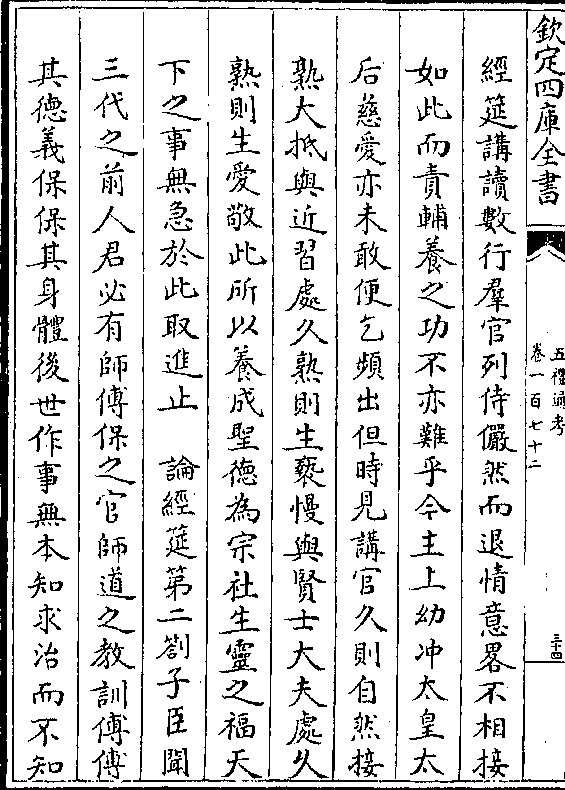 欽定四庫全書
五禮通考
卷一百七十二
三十四
經筵講讀數行羣官列侍儼然而退情意畧不相接
如此而責輔養之功不亦難乎今主上幼冲太皇太
后慈愛亦未敢便乞頻出但時見講官久則自然接
熟大抵與近習處久熟則生褻慢與賢士大夫處久
熟則生愛敬此所以養成聖德為宗社生靈之福天
下之事無急於此取進止　論經筵第二劄子臣聞
三代之前人君必有師傅保之官師道之教訓傅傅
其德義保保其身體後世作事無本知求治而不知